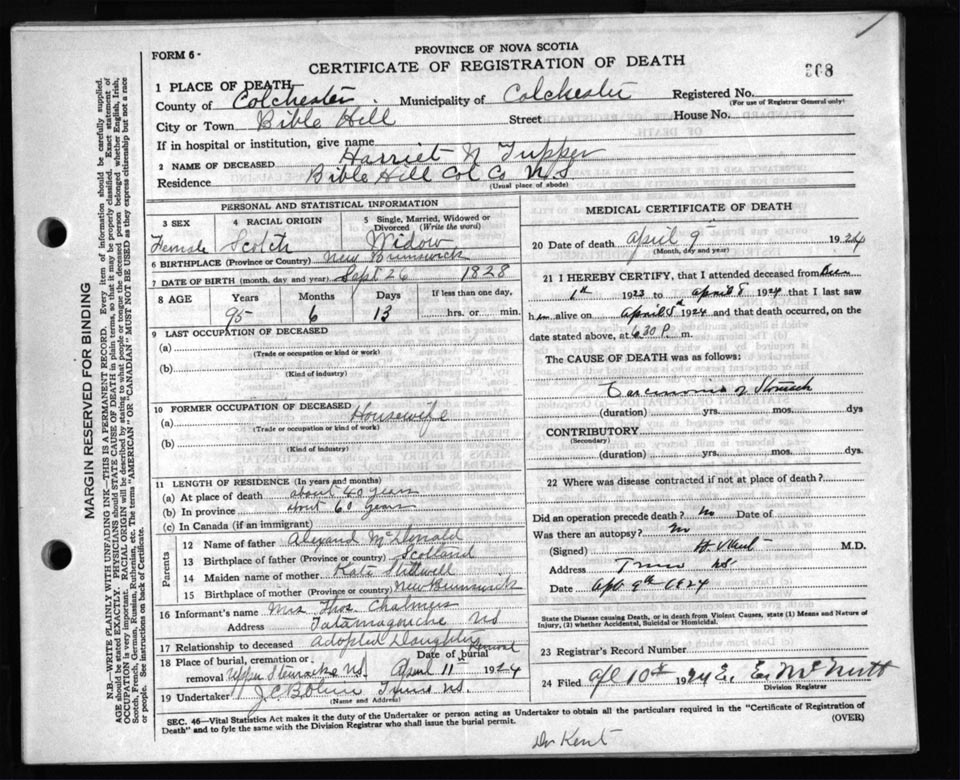 FORM 6-
PROVINCE OF NOVA SCOTIA
CERTIFICATE OF REGISTRATION OF DEATH
368
1 PLACE OF DEATH
County of Colchester. Municipality of Colchester Registered No.
(For use of Registrar General only)
City or Town Bible Hill Street House No.
If in hospital or institution, give name
2 NAME OF DECEASED Harriet N Tupper
Residence Bible Hill Col Co N.S
(Usual place of abode)
PERSONAL AND STATISTICAL INFORMATION
3 SEX 4 RACIAL ORIGIN 5 Single, Married, Widowed or Divorced (Write the word)
Female Scotch Widow
6 BIRTHPLACE (Province or Country) New Brunswick
7 DATE OF BIRTH (month, day and year) Sept 26 1828
8 AGE Years Months Days If less than one day,
95 6 13 hrs. or min.
9 LAST OCCUPATION OF DECEASED
(a)
(Trade or occupation or kind of work)
(b)
(Kind of industry)
10 FORMER OCCUPATION OF DECEASED
(a) Housewife
(Trade or occupation or kind of work)
(b)
(Kind of industry)
11 LENGTH OF RESIDENCE (In years and months)
(a) At place of death about 40 years
(b) In province about 60 years
(c) In Canada (if an immigrant)
Parents
12 Name of father McDonald
13 Birthplace of father (Province or country) Scotland
14 Maiden name of mother Kate Stillwell
15 Birthplace of mother (Province or country) New Brunswick
16 Informant's name Mrs Thos. Chalmers
Address Tatamagouche NS
17 Relationship to deceased Adopted Daughter
18 Place of burial, cremation or removal Upper Stewiacke NS. Date of burial April 11 1924
19 Undertaker Truro NS.
(Name and Address)
MEDICAL CERTIFICATE OF DEATH
20 Date of death April 9 1924
(Month, day and year)
21 I HEREBY CERTIFY, that I attended deceased from
1st 1923 to April 8 1924 that I last saw
her alive on April 8th 1924 and that death occurred, on the
date stated above, at 6.30 P. m.
The CAUSE OF DEATH was as follows:
Carcinoma of Stomach
(duration) yrs. mos. dys
CONTRIBUTORY
(Secondary)
(duration) yrs. mos. dys.
22 Where was disease contracted if not at place of death?
Did an operation precede death? No Date of
Was there an autopsy? No
(Signed) H V Kent M.D.
Address Truro NS.
Date Apl 9th 1924
State the Disease causing Death, or in death from Violent Causes, state (1) Means and Nature of Injury, (2) whether Accidental, Suicidal or Homicidal.
23 Registrar's Record Number
24 Filed Apl 10th 1924 McNutt
Division Registrar
SEC. 46—Vital Statistics Act makes it the duty of the Undertaker or person acting as Undertaker to obtain all the particulars required in the "Certificate of Registration of
Death" and to fyle the same with the Division Registrar who shall issue the burial permit.
(OVER)
Dr Kent
MARGIN RESERVED FOR BINDING
N.B.—WRITE PLAINLY WITH UNFADING INK—THIS IS A PERMANENT RECORD. Every item of information should be carefully supplied.
AGE should be stated EXACTLY. PHYSICIANS should STATE CAUSE OF DEATH in plain terms, so that it may be properly classified. Exact statement of
OCCUPATION is very important. RACIAL ORIGIN will be described by stating to what people or tongue the deceased person belonged whether English, Irish,
Scotch, French, German, Russian, Ruthenian, etc. The terms "AMERICAN" OR "CANADIAN" MUST NOT BE USED as they express citizenship but not a race
or people. See instructions on back of Certificate.